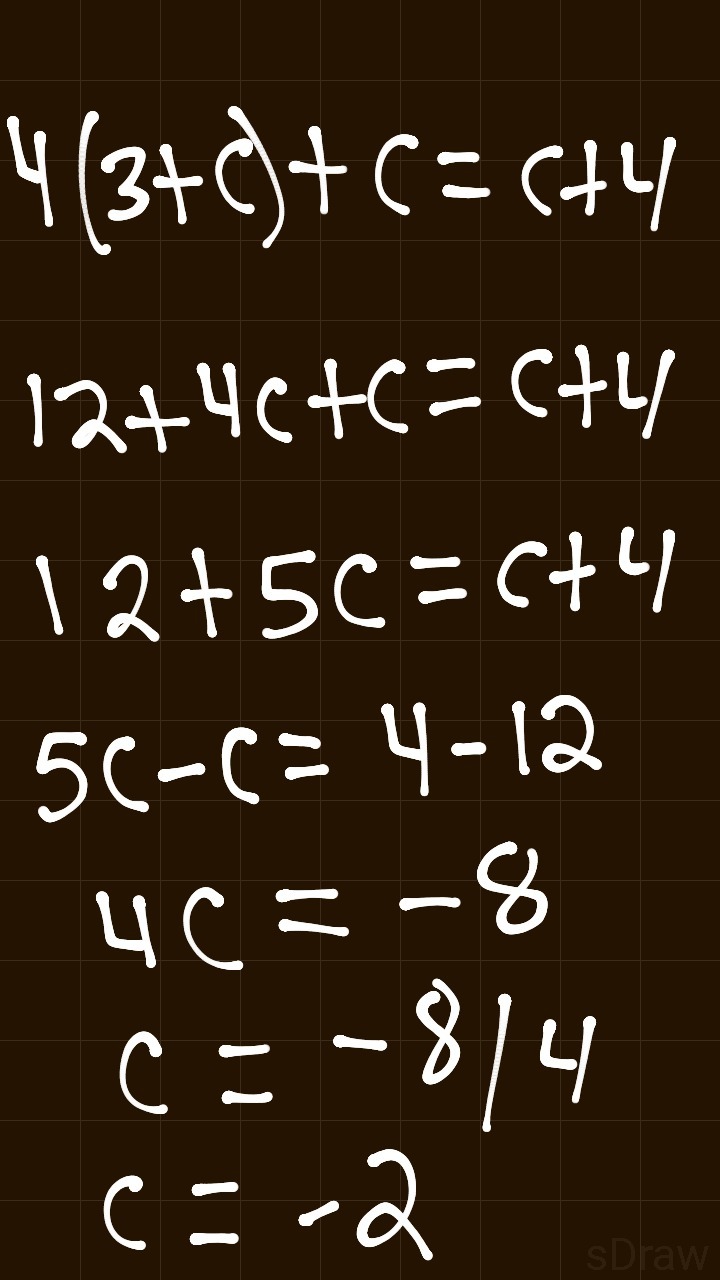 4(3+c)+c=c+4
12+4c+c=c+4
12+5c=c+4
5c-c=4-12
4c=-8
c=-8/4
c=-2
sDraw